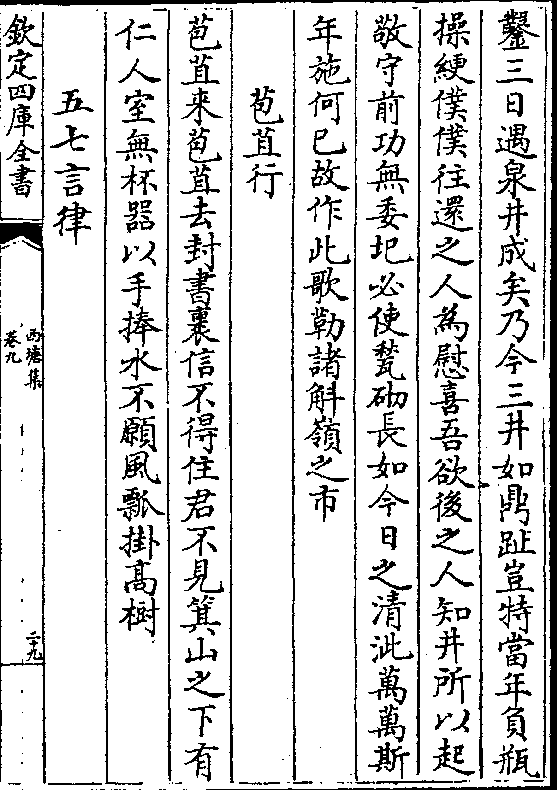 鑿三日遇泉井成矣乃今三井如鼎趾豈特當年負瓶
操綆僕僕往還之人為慰喜吾欲後之人知井所以起
敬守前功無委圮必使甃砌長如今日之清泚萬萬斯
年施何已故作此歌勒諸斛嶺之市
苞苴行
苞苴來苞苴去封書裹信不得住君不見箕山之下有
仁人室無杯器以手捧水不願風瓢掛高樹
五七言律
欽定四庫全書
西塘集
卷九
二十九